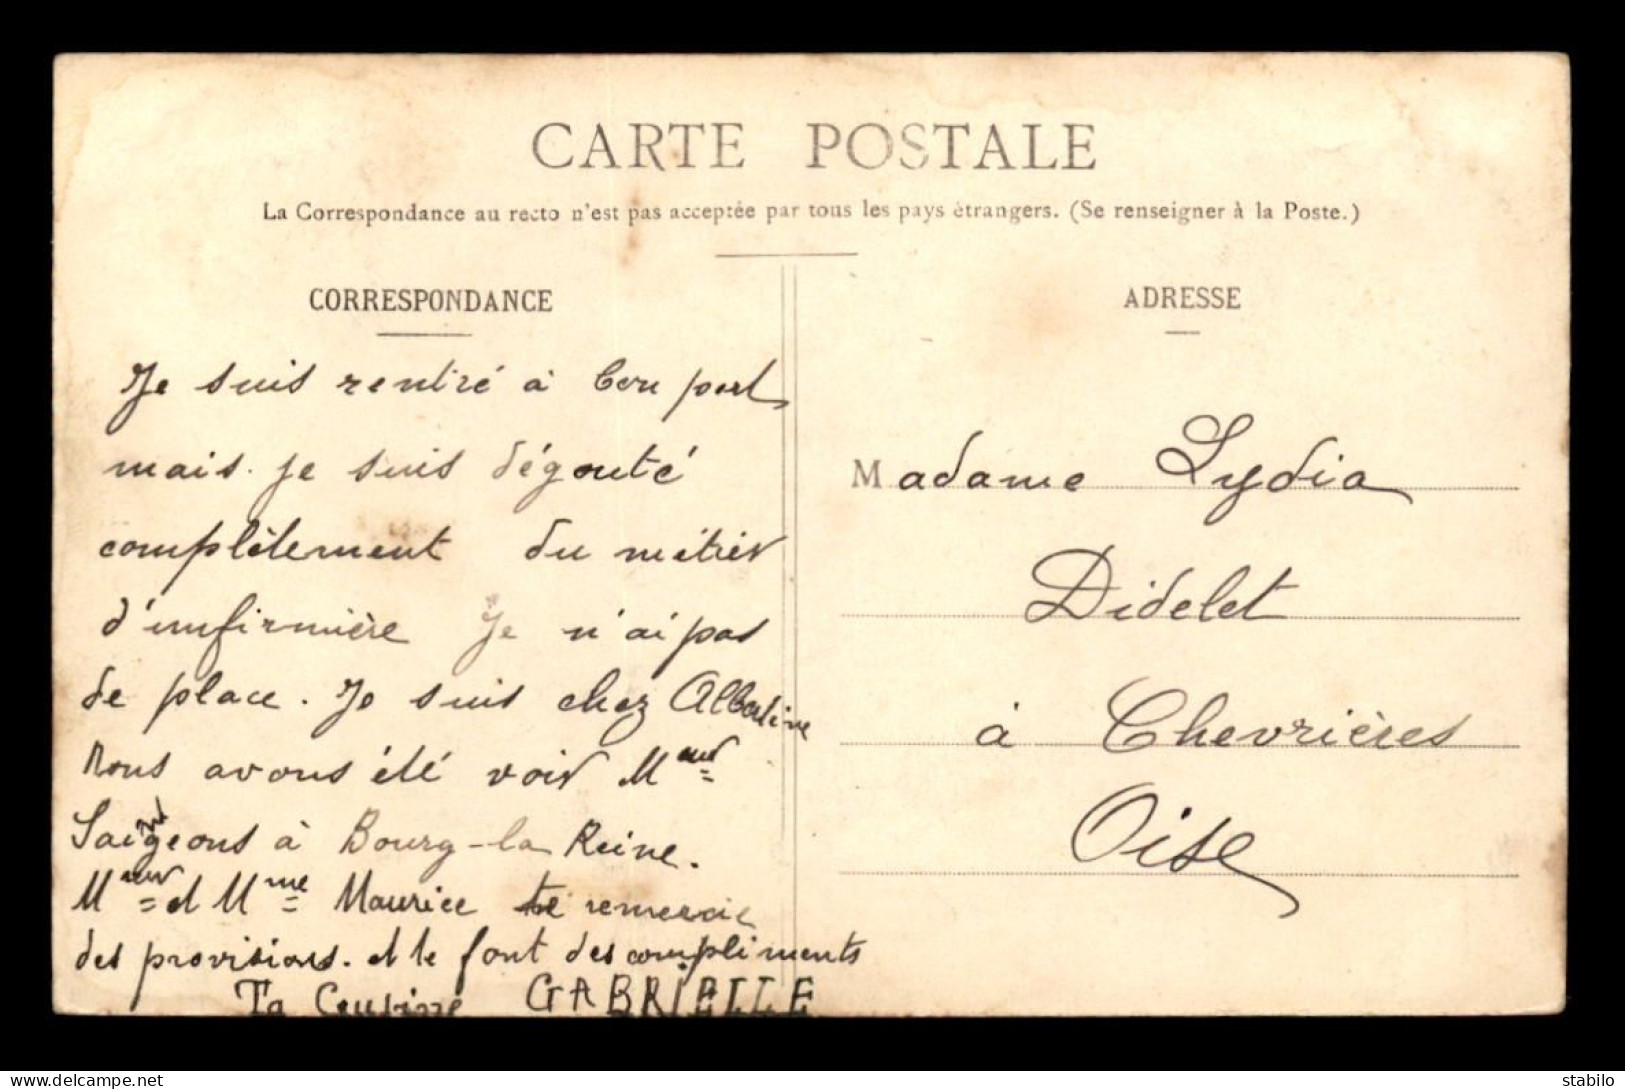 CARTE POSTALE
La Correspondance au recto n'est pas acceptée par tous les pays étrangers. (Se renseigner à la Poste.)
CORRESPONDANCE
Je suis rentré à bon port
mais je suis dégouté
complètement du métier
d'infirmière Je n'ai pas
de place. Je suis chez Albertine
Nous avons été voir
à Bourg-la Reine.
et Mme Maurice te remercie
des provisions. et te font des compliments
Ta Cousine GABRIELLE
ADRESSE
Madame Lydia
Didelet
à Chevrières
Oise
delcampe.net
stabilo